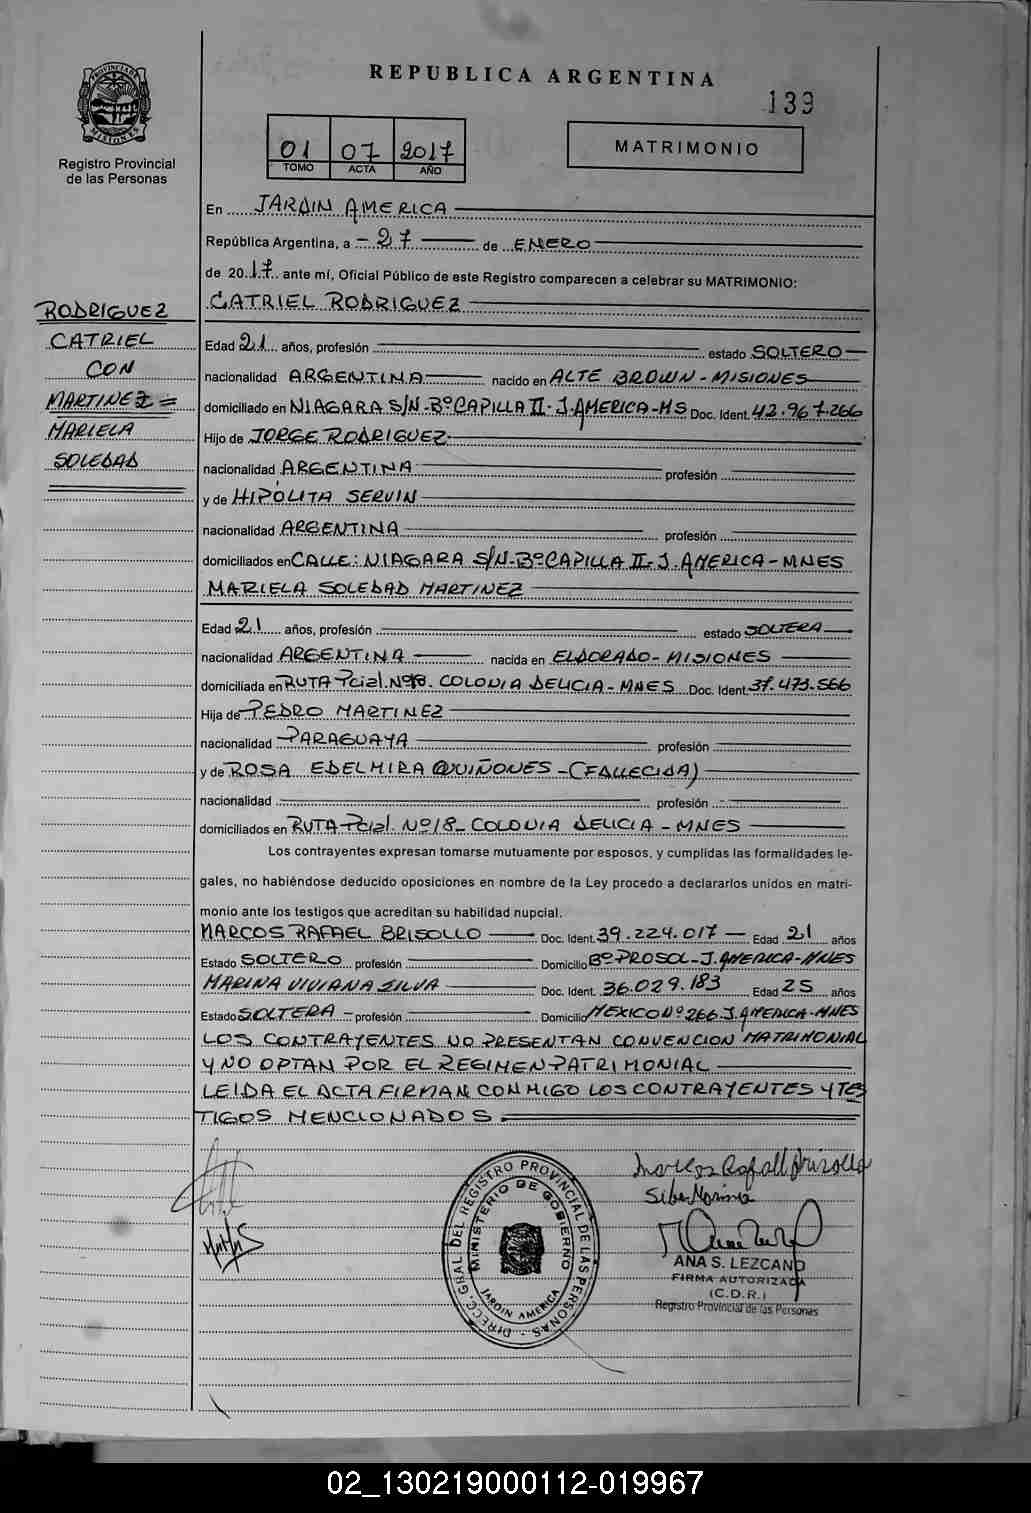 REPUBLICA ARGENTINA
139
PROVINCIA DE MISIONES
Registro Provincial
de las Personas
01 07 2017
TOMO ACTA AÑO
MATRIMONIO
En JARDIN AMERICA
República Argentina, a 27 de ENERO
de 2017 ante mí, Oficial Público de este Registro comparecen a celebrar su MATRIMONIO:
CATRIEL RODRIGUEZ
RODRIGUEZ
CATRIEL
CON
MARTINEZ
MARIELA
SOLEDAD
Edad 21 años, profesión estado SOLTERO
nacionalidad ARGENTINA nacido en ALTE BROWN - MISIONES
domiciliado en NIAGARA S/N-Bº CAPILLA II - J. AMERICA-MS Doc. Ident. 42.967.266
Hijo de JORGE RODRIGUEZ
nacionalidad ARGENTINA profesión
y de HIPÓLITA SERVIN
nacionalidad ARGENTINA profesión
domiciliados en CALLE: NIAGARA S/N-Bº CAPILLA II-J. AMERICA - MNES
MARIELA SOLEDAD MARTINEZ
Edad 21 años, profesión estado SOLTERA
nacionalidad ARGENTINA nacida en ELDORADO - MISIONES
domiciliada en RUTA Pcial. Nº18. COLONIA DELICIA - MNES Doc. Ident. 37.473.566
Hija de PEDRO MARTINEZ
nacionalidad PARAGUAYA profesión
y de ROSA EDELMIRA QUIÑONES - (FALLECIDA)
nacionalidad profesión
domiciliados en RUTA Pcial. Nº18- COLONIA DELICIA - MNES
Los contrayentes expresan tomarse mutuamente por esposos, y cumplidas las formalidades le-
gales, no habiéndose deducido oposiciones en nombre de la Ley procedo a declararlos unidos en matri-
monio ante los testigos que acreditan su habilidad nupcial.
MARCOS RAFAEL BRISOLLO Doc. Ident. 39.224.017 Edad 21 años
Estado SOLTERO profesión Domicilio Bº PROSOL - J. AMERICA-MNES
MARINA VIVIANA SILVA Doc. Ident. 36.029.183 Edad 25 años
Estado SOLTERA profesión Domicilio MEXICO Nº 266. J. AMERICA-MNES
LOS CONTRAYENTES NO PRESENTAN CONVENCION MATRIMONIAL
Y NO OPTAN POR EL REGIMEN PATRIMONIAL
LEIDA EL ACTA FIRMAN CONMIGO LOS CONTRAYENTES Y TES
TIGOS MENCIONADOS
DIRECC. GRAL. DEL REGISTRO PROVINCIAL DE LAS PERSONAS
MINISTERIO DE GOBIERNO
JARDIN AMERICA
Marcos Rafael Brisollo
Silva Marina
ANA S. LEZCANO
FIRMA AUTORIZADA
(C.D.R.)
Registro Provincial de las Personas
02_130219000112-019967